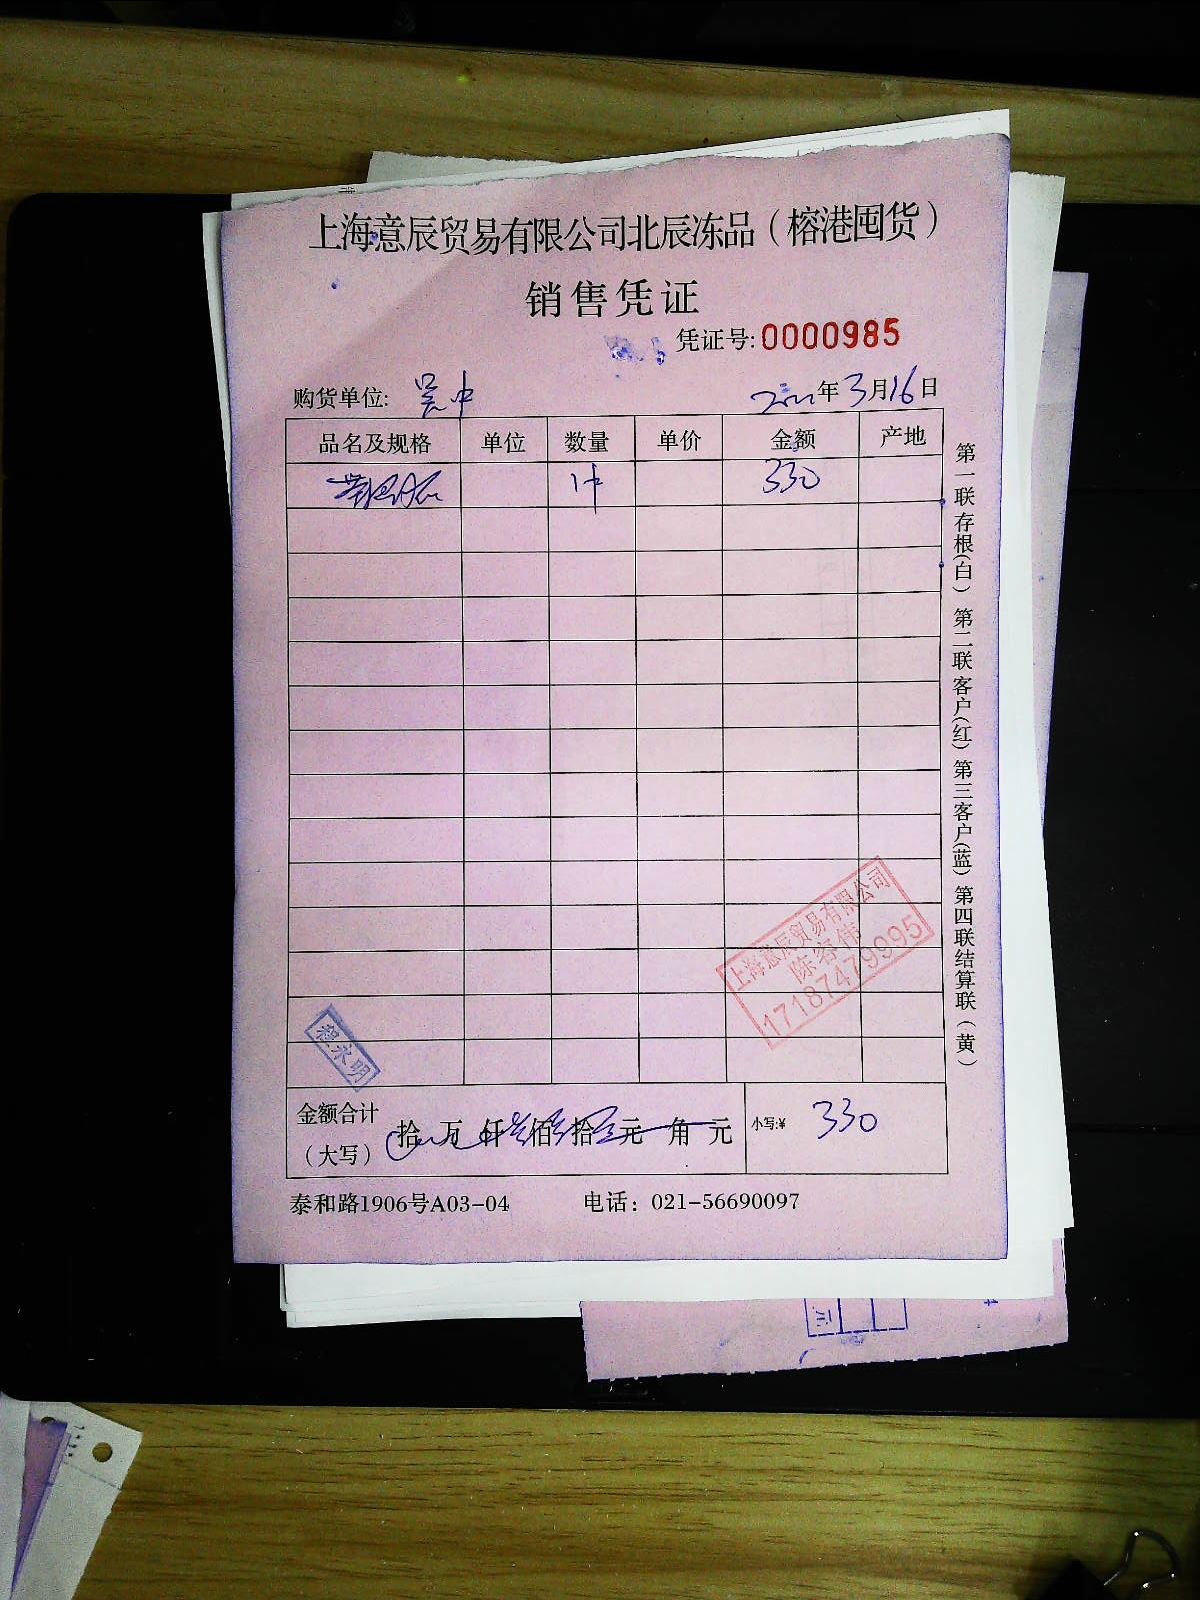 上海意辰贸易有限公司北辰冻品（榕港囤货）
销售凭证
凭证号:0000985
购货单位: 吴中
年3月16日
品名及规格 单位 数量 单价 金额 产地
1件 330
第一联存根(白) 第二联客户(红) 第三客户(蓝) 第四联结算联(黄)
上海意辰贸易有限公司
陈容伟
17187479995
程永明
金额合计
（大写） 拾 万 仟 佰 拾 元 角 元 小写:¥ 330
泰和路1906号A03-04 电话：021-56690097